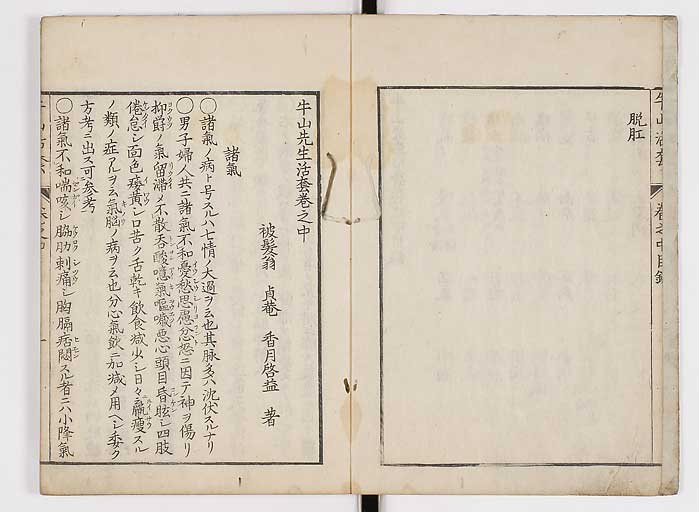 牛山活套
卷之中目錄
脱肛
牛山先生活套卷之中
被髮翁 貞菴 香月啓益 著
諸氣
○諸氣ノ病ト号スルハ七情ノ大過ヲ云也其脉多ハ沈伏スルナリ
○男子婦人共ニ諸氣不和憂愁思慮忿怒ニ因テ神ヲ傷リ
抑欝ノ氣留滯〆不散吞酸噫氣嘔噦惡心頭目昏眩シ四肢
倦怠シ面色痿黄シ口苦ク舌乾キ飲食减少シ日々羸瘦スル
ノ類ノ症アルヲ云氣腦ノ病ヲ云也分心氣飲ニ加减〆用ヘシ委ク
方考ニ出ス可參考
○諸氣不和喘咳シ脇肋刺痛シ胸膈痞悶スル者ニハ小降氣